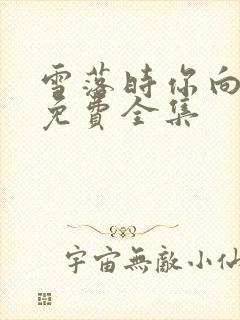 雪落时你向
免費全集
宇宙無敵小仙